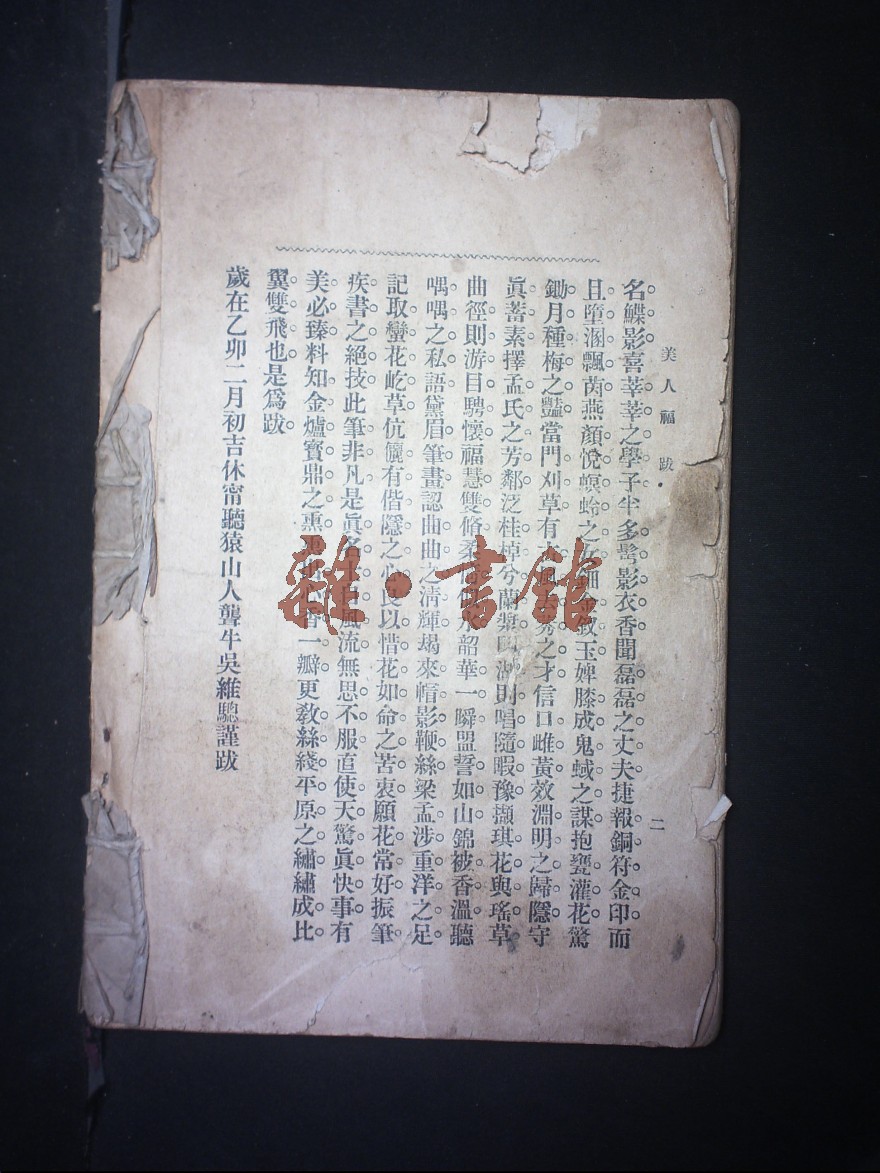 美人福 跋
二
名鰈影喜莘莘之學子半多鬢影衣香聞磊磊之丈夫捷報銅符金印而
且墮溷飄茵燕顏悅螟蛉之女鈿金敘玉婢膝成鬼蜮之謀抱甕灌花驚
鋤月種梅之豔當門刈草有 之才信口雌黃效淵明之歸隱守
眞蓄素擇孟氏之芳鄰泛桂棹兮蘭槳 則唱隨暇豫擷琪花與瑤草
曲徑則游目騁懷福慧雙脩柔 韶華一瞬盟誓如山錦被香溫聽
喁喁之私語黛眉筆畫認曲曲之淸輝朅來帽影鞭絲梁孟涉重洋之足
記取蠻花屹草伉儷有偕隱之心良以惜花如命之苦衷願花常好振筆
疾書之絕技此筆非凡是眞名 自風流無思不服直使天驚眞快事有
美必臻料知金爐寶鼎之熏 香一瓣更敎絲綫平原之繡繡成比
翼雙飛也是爲跋
歲在乙卯二月初吉休甯聽猿山人聾牛吳維驄謹跋
雜·書館